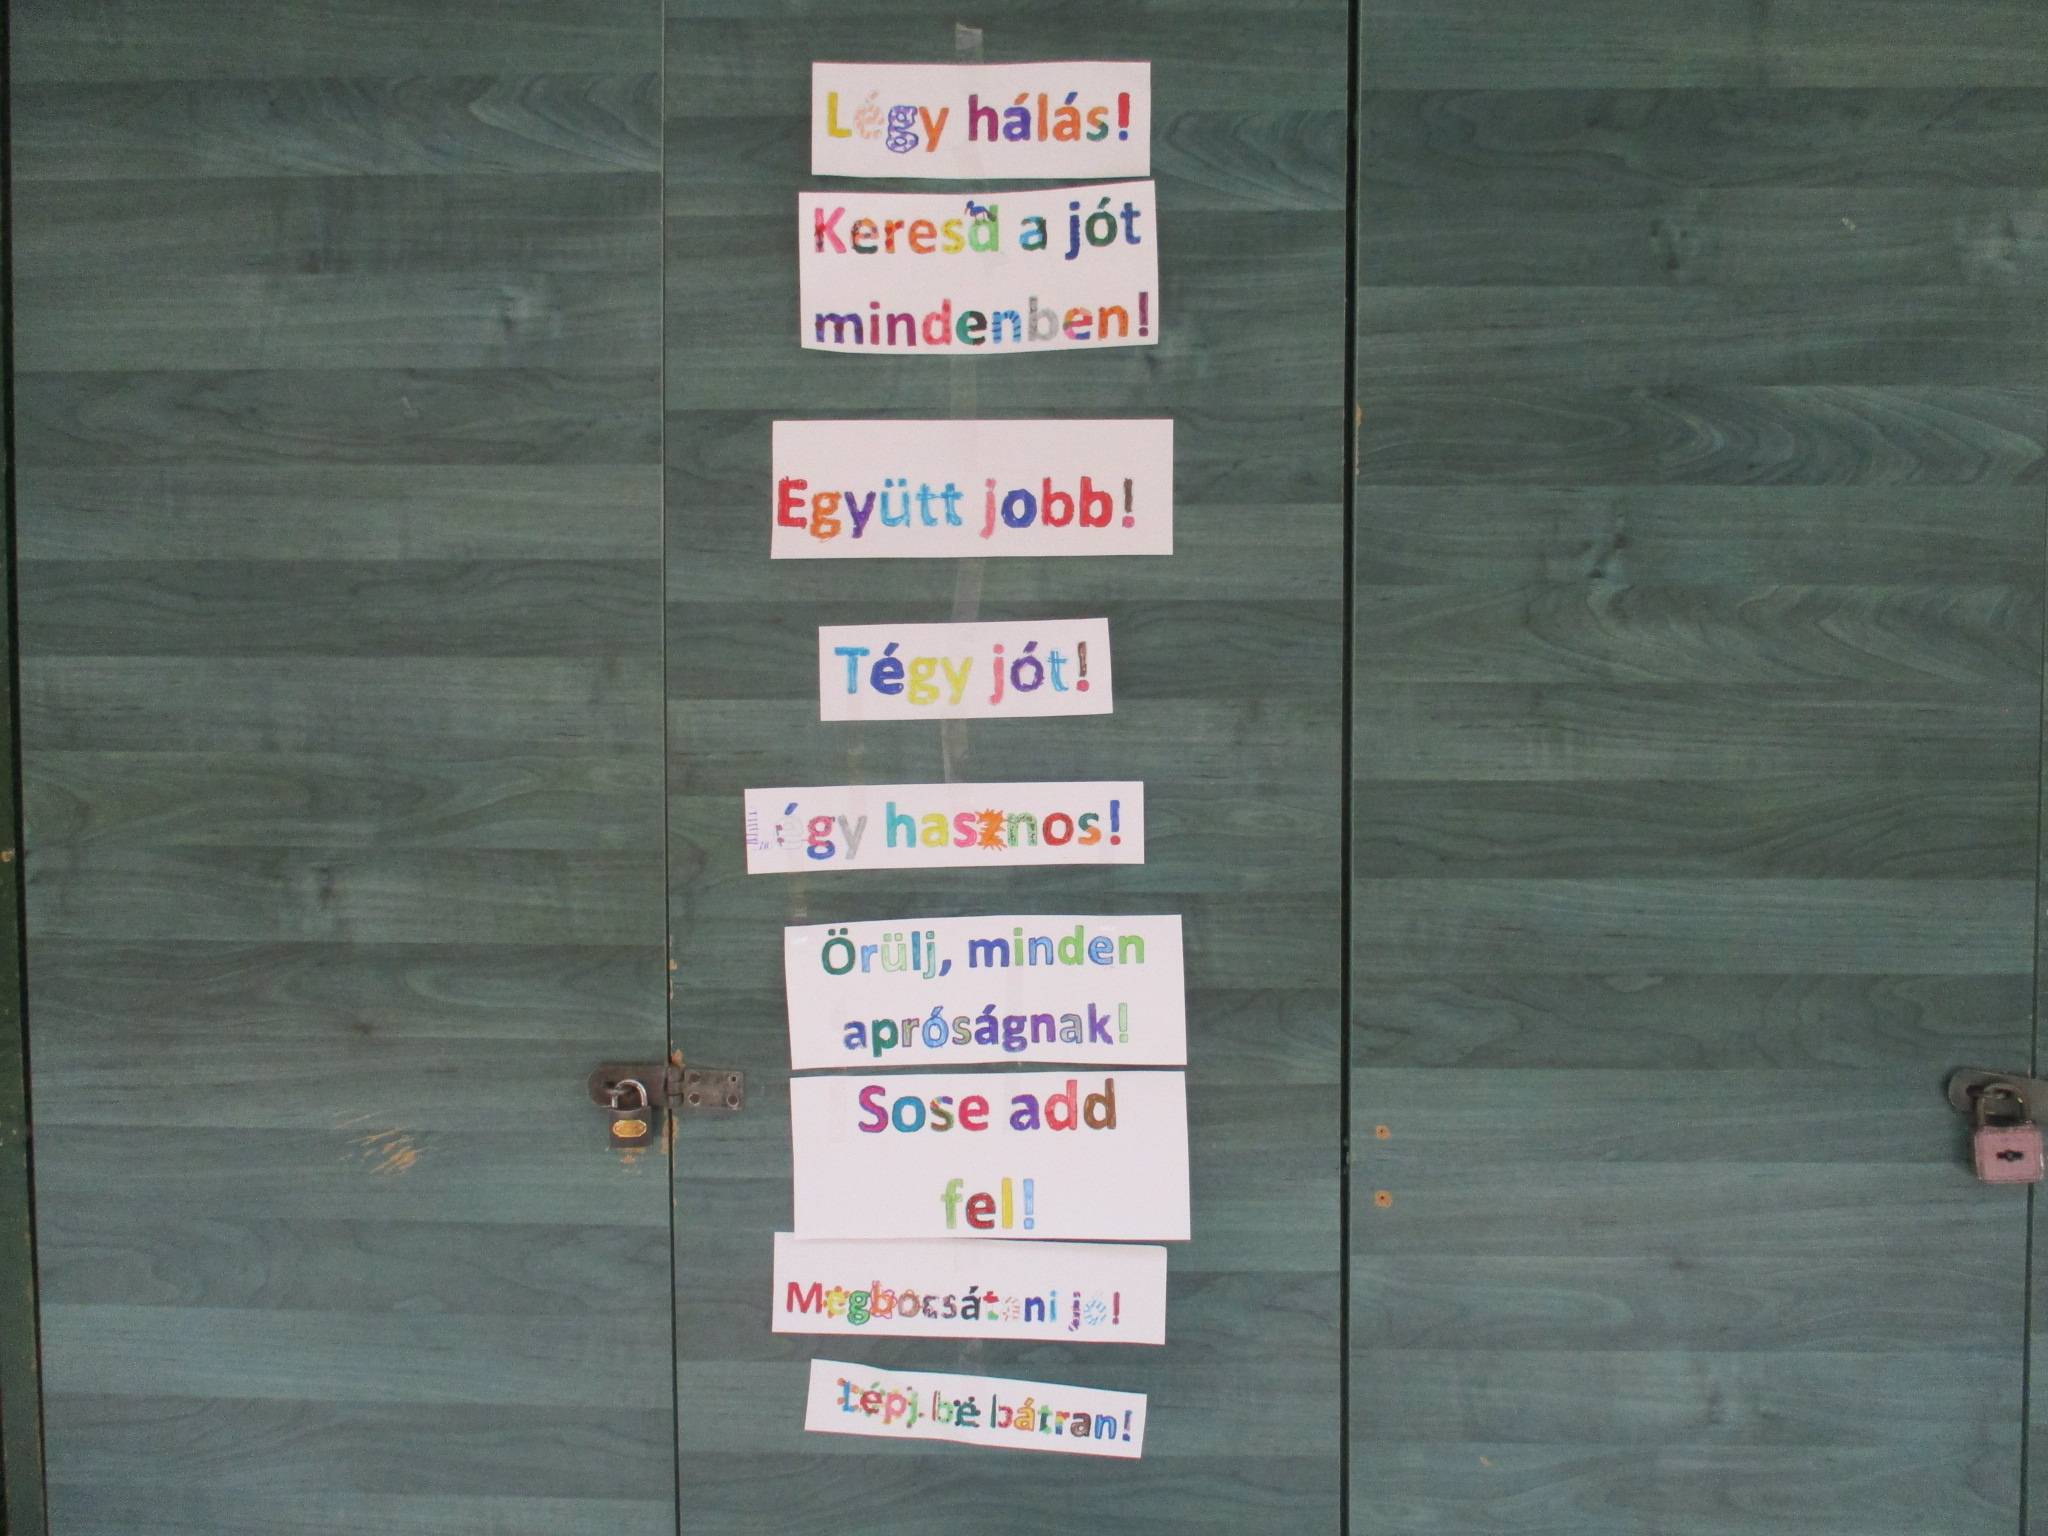 Légy hálás!
Keresd a jót
mindenben!
Együtt jobb!
Tégy jót!
Légy hasznos!
Örülj, minden
apróságnak!
Sose add
fel!
Megbocsátani jó!
Lépj be bátran!